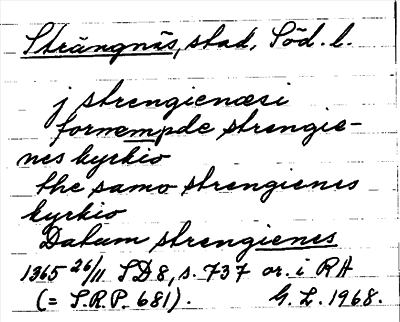 Strängnäs, stad, Söd. l.
j strengienæsi
fornempde strengie-
nes kyrkio
the samo strengienes
kyrkio
Datum strengienes
1365 26/11 SD8, s. 737 or. i RA
(= S.R.P. 681). G. L. 1968.